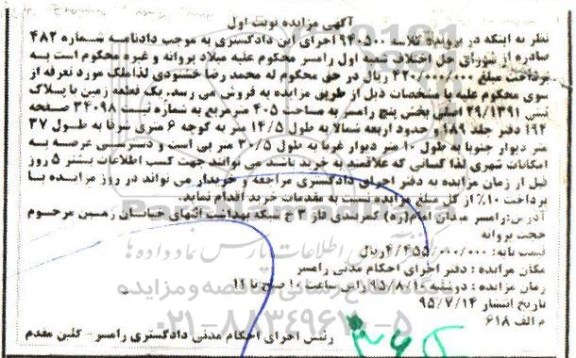 آگهی مزایده نوبت اول
نظر به اینکه در پرونده کلاسه ۹۴۰۵۰۰ اجرای این دادگستری به موجب دادنامه شماره ۴۸۲
صادره از شورای حل اختلاف شعبه اول رامسر محکوم علیه میلاد پروانه و غیره محکوم است به
پرداخت مبلغ ۲۲۰/۰۰۰/۰۰۰ ریال در حق محکوم له محمد رضا خشنودی لذا ملک مورد تعرفه از
سوی محکوم علیه با مشخصات ذیل از طریق مزایده به فروش می رسد. یک قطعه زمین با پلاک
ثبتی ۳۹/۱۳۹۱ اصلی بخش پنج رامسر به مساحت ۴۰۵ متر مربع به شماره ثبت ۳۴۰۹۸ صفحه
۱۹۴ دفتر جلد ۱۸۹ و حدود اربعه شمالا به طول ۱۴/۵ متر به کوچه ۶ متری شرقا به طول ۳۷
متر دیوار جنوبا به طول ۱۰ متر دیوار غربا به طول ۳۰/۵ متر پی است و دسترسی عرصه به
امکانات شهری لذا کسانی که علاقمند به خرید باشند می توانند جهت کسب اطلاعات بیشتر ۵ روز
قبل از زمان مزایده به دفتر اجرای دادگستری مراجعه و خریدار می تواند در روز مزایده با
پرداخت ۱۰٪ از کل مبلغ مزایده نسبت به مقدمات خرید اقدام نماید.
آدرس: رامسر میدان امام(ره) کمربندی فاز ۳ خ شبکه بهداشت انتهای خیابان زمین مرحوم
حجت پروانه
قیمت پایه: ۴/۴۵۵/۰۰۰/۰۰۰ ریال
مکان مزایده : دفتر اجرای احکام مدنی رامسر
زمان مزایده : دوشنبه ۹۵/۸/۱۰ راس ساعت ۱۰ صبح تا ۱۱
تاریخ انتشار ۹۵/۷/۱۴
م الف ۶۱۸
رئیس اجرای احکام مدنی دادگستری رامسر - گلین مقدم
۰۲۱-۸۸۳۴۹۶۷۰-۵